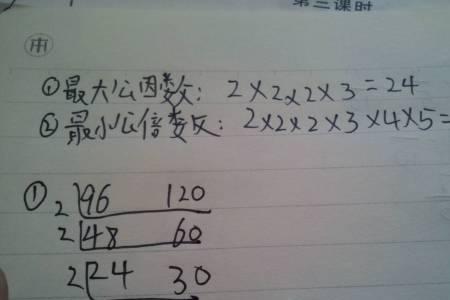 第三课时
①最大公因数: 2×2×2×3=24
②最小公倍数: 2×2×2×3×4×5=
① 2 96 120
2 48 60
2 24 30